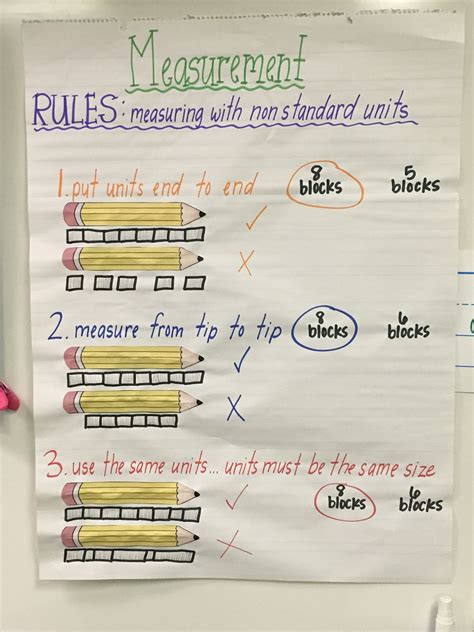 Measurement
RULES: measuring with non standard units
1. put units end to end
8 blocks
5 blocks
✓
X
2. measure from tip to tip
8 blocks
6 blocks
✓
X
3. use the same units... units must be the same size
8 blocks
6 blocks
✓
X